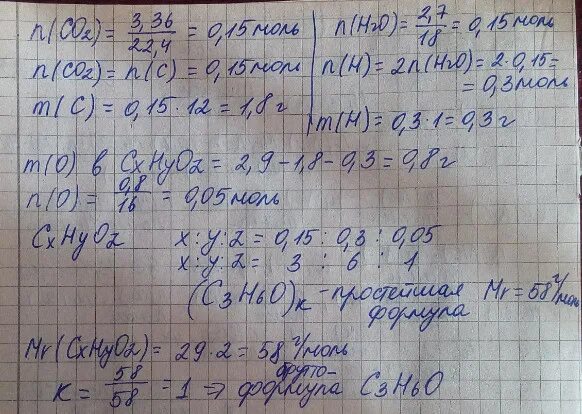 n(CO2) = 3,36/22,4 = 0,15 моль
n(CO2) = n(C) = 0,15 моль
m(C) = 0,15 · 12 = 1,8 г
n(H2O) = 2,7/18 = 0,15 моль
n(H) = 2n(H2O) = 2 · 0,15 =
= 0,3 моль
m(H) = 0,3 · 1 = 0,3 г
m(O) в CxHyOz = 2,9 - 1,8 - 0,3 = 0,8 г
n(O) = 0,8/16 = 0,05 моль
CxHyOz x : y : z = 0,15 : 0,3 : 0,05
x : y : z = 3 : 6 : 1
(C3H6O)к - простейшая Mr = 58 г/моль
формула
Mr(CxHyOz) = 29 · 2 = 58 г/моль
к = 58/58 = 1 ⇒ брутто-формула C3H6O